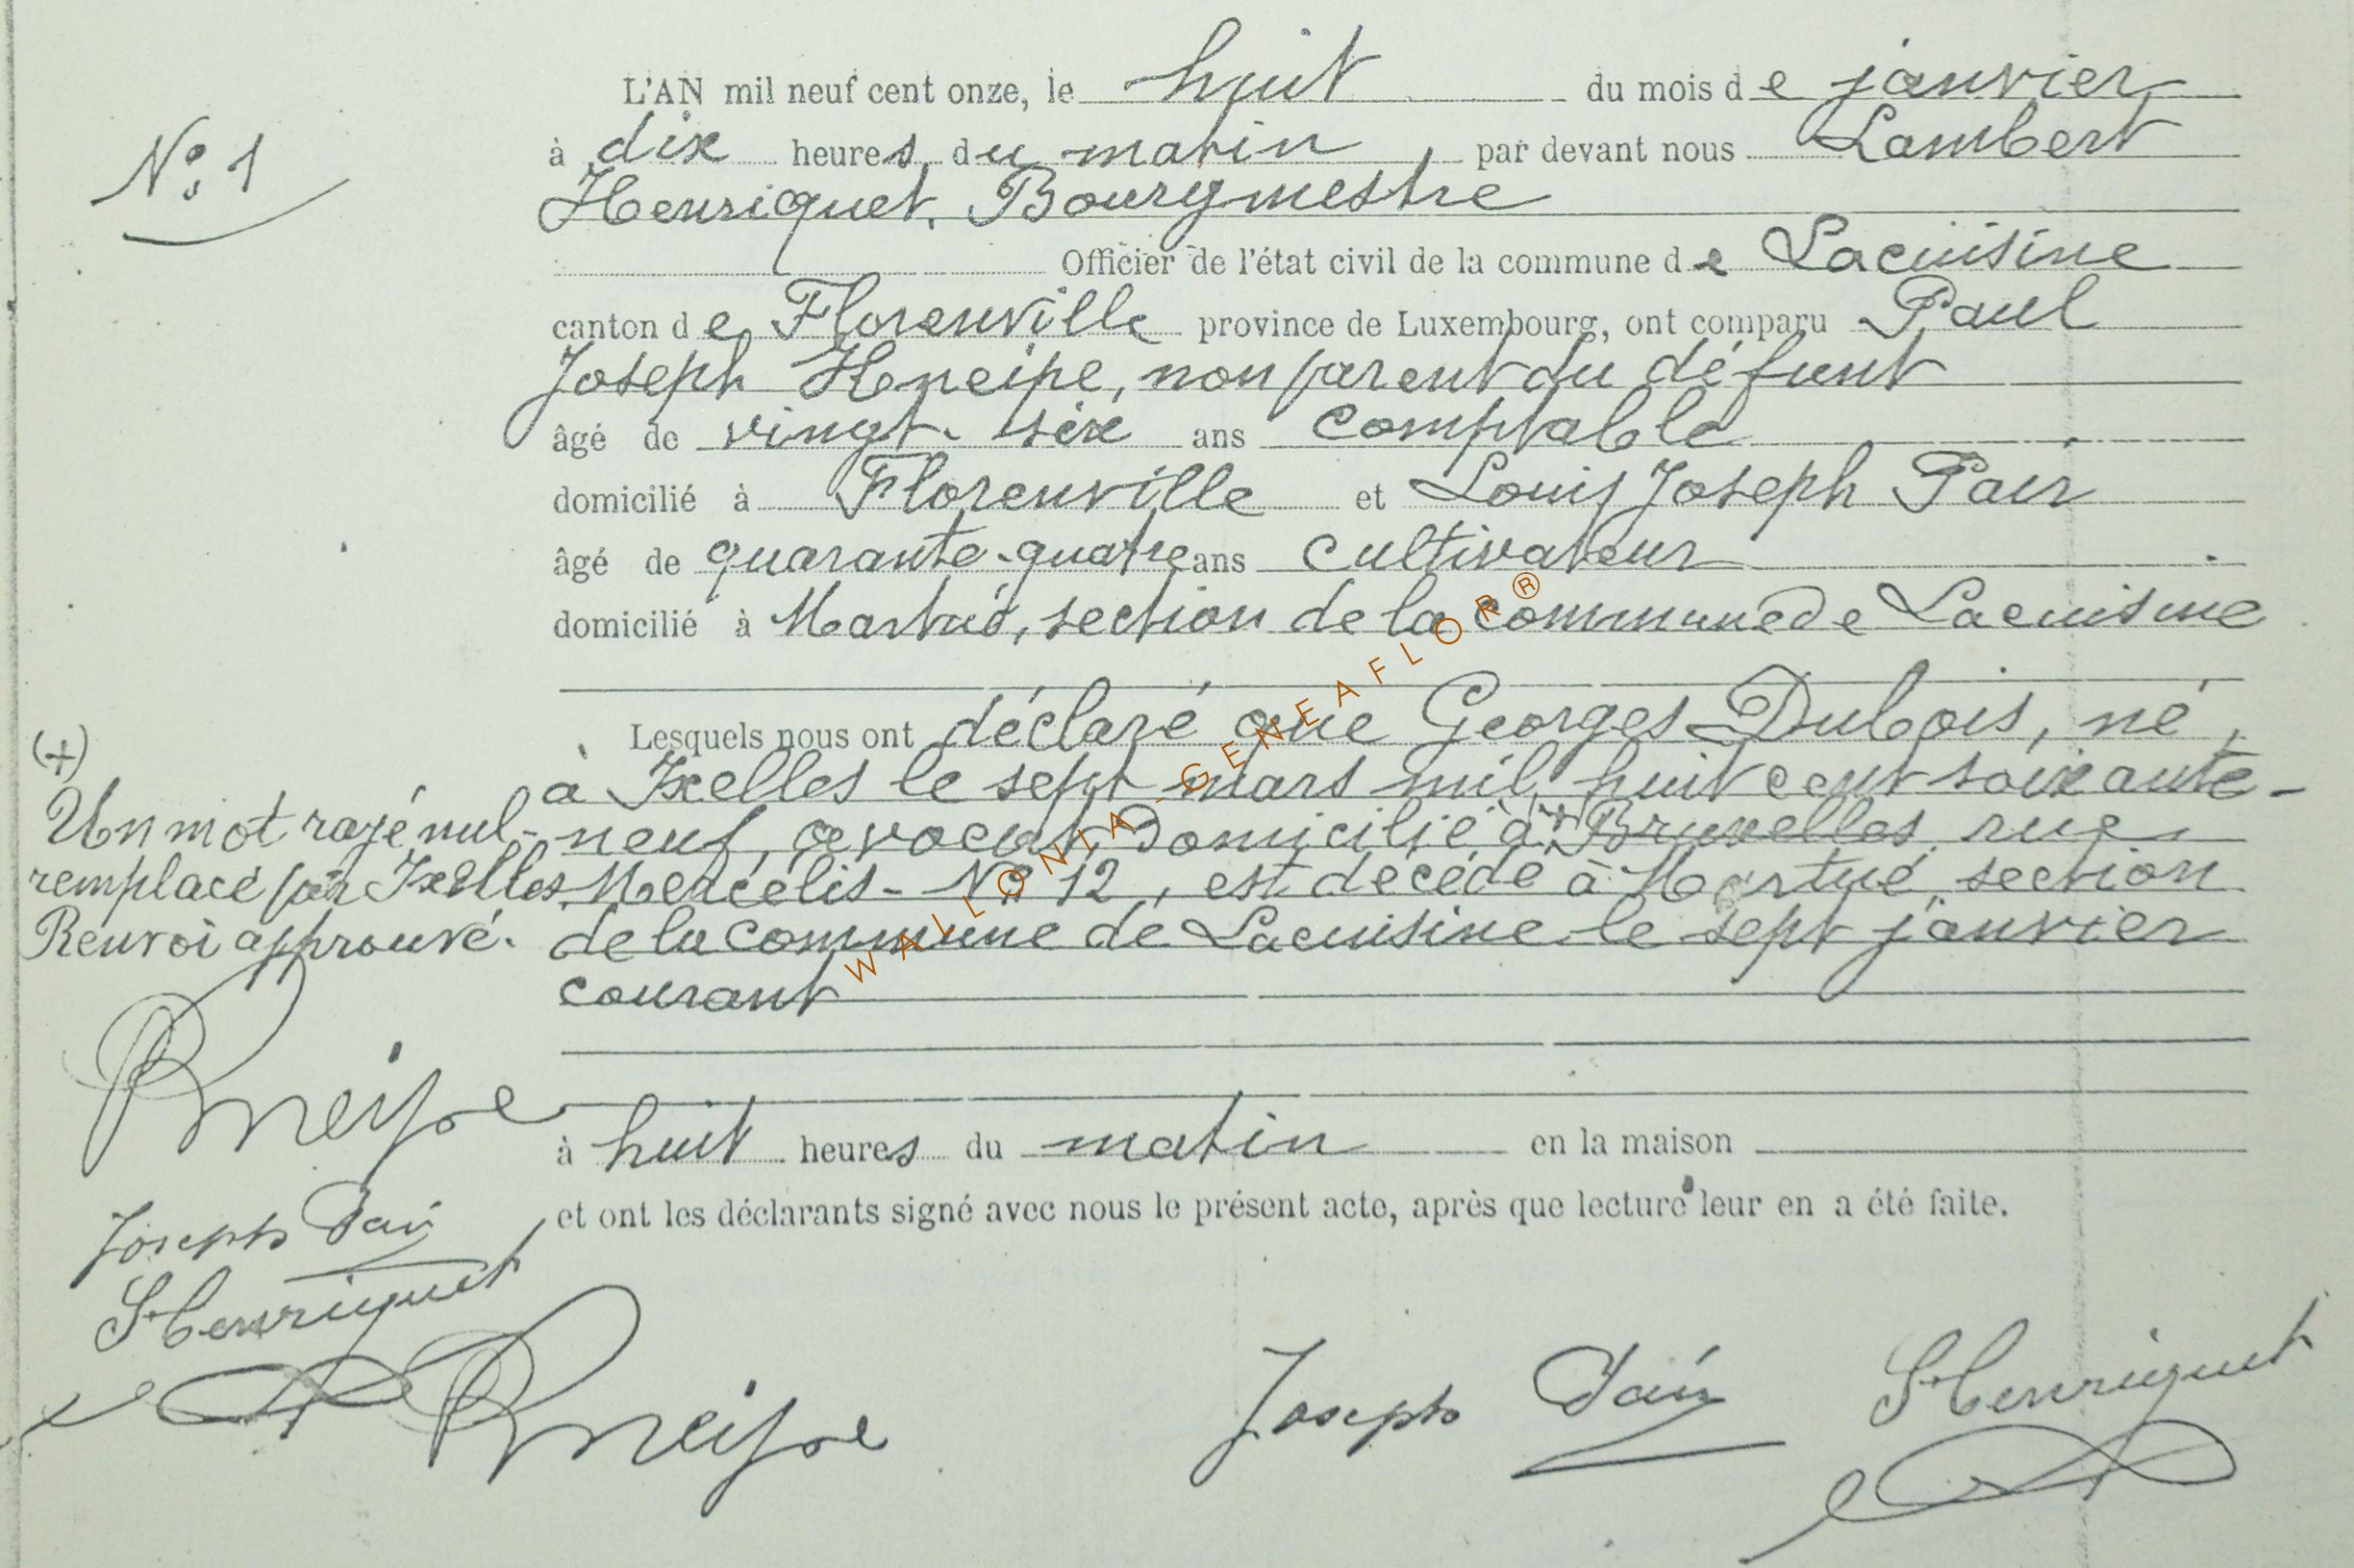 N° 1
L'AN mil neuf cent onze, le huit du mois de janvier
à dix heures du matin, par devant nous Lambert
Henriquet, Bourgmestre
Officier de l'état civil de la commune de Lacuisine
canton de Florenville province de Luxembourg, ont comparu Paul
Joseph Kneipe, non parent du défunt
âgé de vingt-six ans comptable
domicilié à Florenville et Louis Joseph Pair
âgé de quarante-quatre ans cultivateur
domicilié à Martué, section de la commune de Lacuisine
Lesquels nous ont déclaré que Georges Dubois, né
à Ixelles le sept mars mil huit cent soixante-
neuf, avocat domicilié à (+) Bruxelles, rue
Mercelis - N° 12, est décédé à Martué, section
de la commune de Lacuisine le sept janvier
courant
à huit heures du matin en la maison
et ont les déclarants signé avec nous le présent acte, après que lecture leur en a été faite.
(+)
Un mot rayé nul
remplacé par Ixelles
Renvoi approuvé.
PKneipe
Joseph Pair
LHenriquet
PKneipe
Joseph Pair
LHenriquet
WALLONIA-GENEAFLOR®